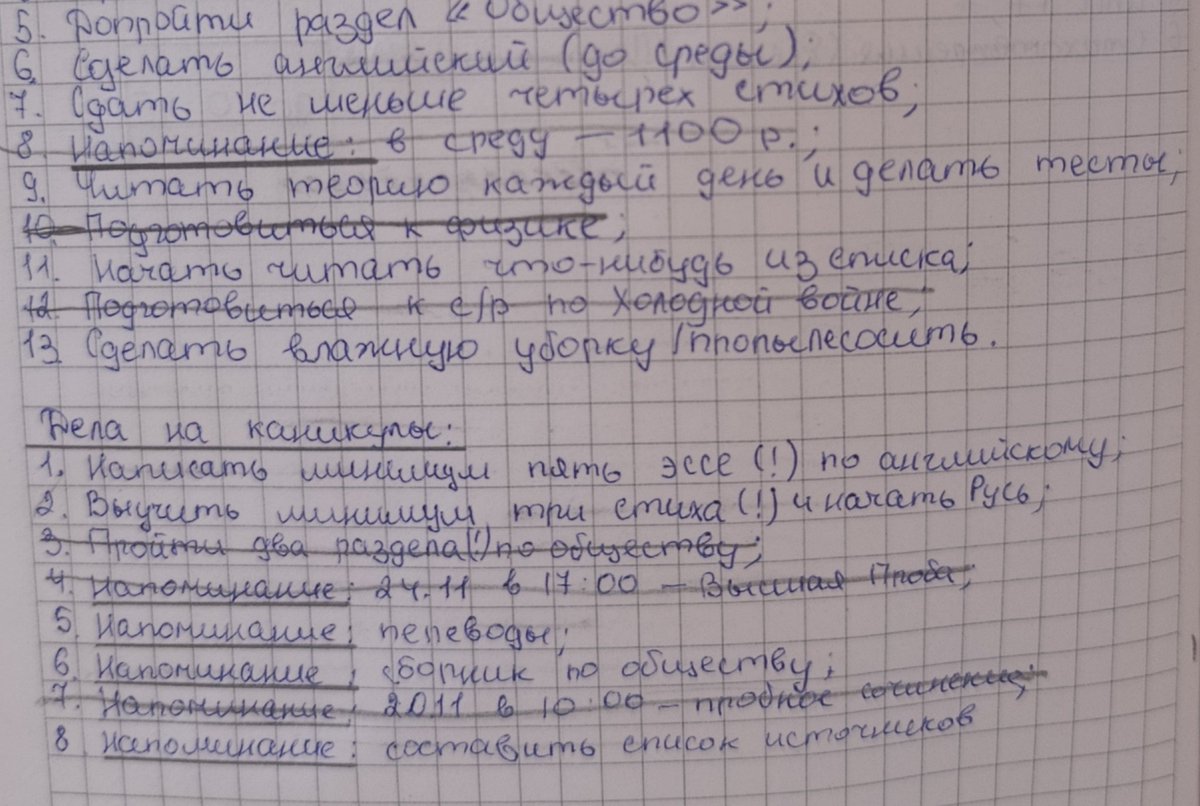 5. Допройти раздел «Общество»;
6. Сделать английский (до среды);
7. Сдать не меньше четырех стихов;
8. Напоминание: в среду – 1100 р.;
9. Читать теорию каждый день и делать тесты;
10. Подготовиться к физике;
11. Начать читать что-нибудь из списка;
12. Подготовиться к с/р по Холодной войне;
13. Сделать влажную уборку/пропылесосить.
Дела на каникулы:
1. Написать минимум пять эссе (!) по английскому;
2. Выучить минимум три стиха (!) и начать Русь;
3. Пройти два раздела(!) по обществу;
4. Напоминание: 24.11 в 17:00 – Высшая Проба;
5. Напоминание: переводы;
6. Напоминание: сборник по обществу;
7. Напоминание: 20.11 в 10:00 – пробное сочинение;
8. Напоминание: составить список источников